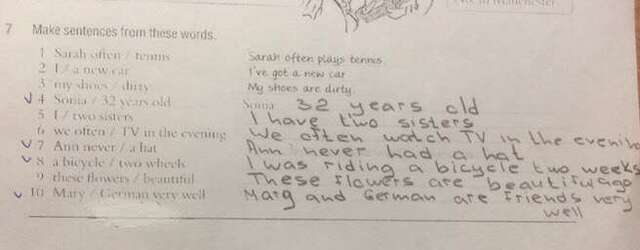 Not in Manchester.
7 Make sentences from these words.
1 Sarah often / tennis Sarah often plays tennis
2 I / a new car I've got a new car
3 my shoes / dirty My shoes are dirty.
4 Sonia / 32 years old Sonia 32 years old
5 I / two sisters I have two sisters
6 we often / TV in the evening We often watch TV in the evening
7 Ann never / a hat Ann never had a hat
8 a bicycle / two wheels I was riding a bicycle two weeks
9 these flowers / beautiful These flowers are beautiful ago
10 Mary / German very well Marg and German are friends very
well